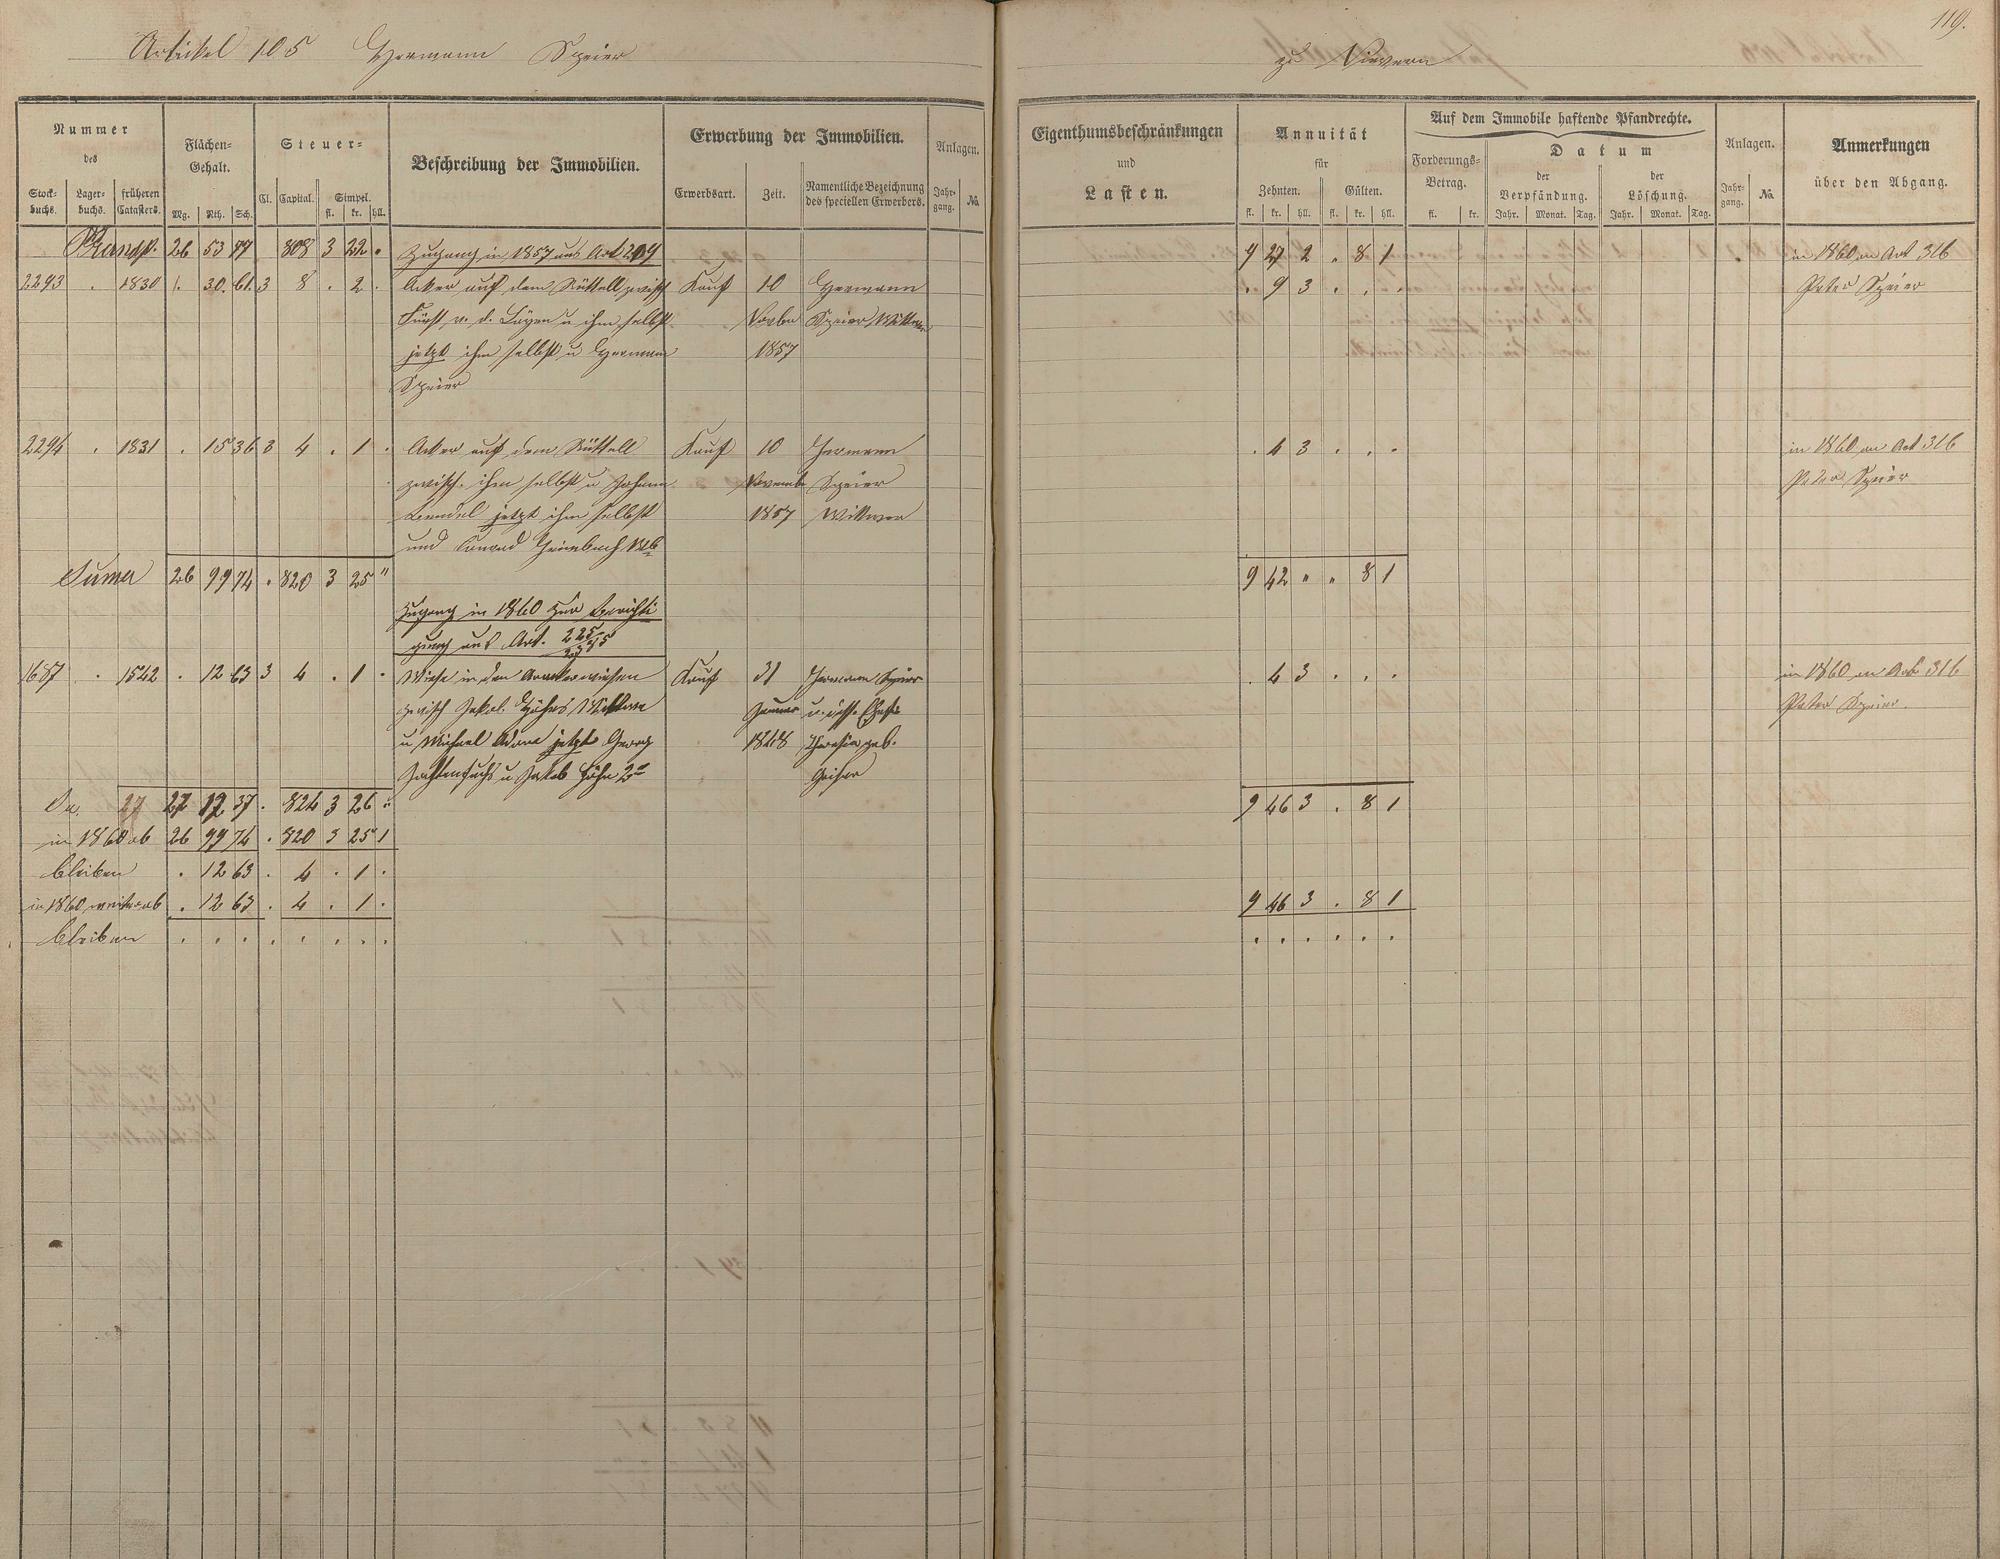 119.
Artikel 105 Hermann Speier zu Nievern
Nummer des
Stock-buchs. Lager-buchs. früheren Catasters.
Flächen-Gehalt.
Mg. Rth. Sch.
Steuer-
Cl. Capital. Simpel.
fl. kr. hll.
Beschreibung der Immobilien.
Erwerbung der Immobilien.
Erwerbsart. Zeit. Namentliche Bezeichnung des speciellen Erwerbers.
Anlagen.
Jahr-gang. No.
Eigenthumsbeschränkungen und Lasten.
Annuität für
Zehnten. Gülten.
fl. kr. hll. fl. kr. hll.
Auf dem Immobile haftende Pfandrechte.
Forderungs-Betrag.
fl. kr.
Datum
der Verpfändung. der Löschung.
Jahr. Monat. Tag. Jahr. Monat. Tag.
Anlagen.
Jahr-gang. No.
Anmerkungen über den Abgang.
Transp. 26 53 77 808 3 22 Zugang in 1857 aus Art 209 9 27 2 . 8 1 in 1860 an Art 316
2293 . 1830 . 30 61 3 8 . 2 . Acker auf dem zwisch Kauf 10 Hermann . 9 3 . . . Peter Speier
Fürst v. d. Leyen u ihm selbst Novbr Speier Wittwer
jetzt ihm selbst u Hermann 1857
Speier
2294 . 1831 . 15 36 3 4 . 1 . Acker auf dem Kauf 10 Hermann . 4 3 . . . in 1860 an Art 316
zwisch. ihm selbst u Johann Novembr Speier Peter Speier
jetzt ihm selbst 1857 Wittwer
und Conrad
Suma 26 99 74 . 820 3 25 " 9 42 " " 8 1
Zugang in 1860 zur Berichti
gung aus Art. 225
1687 . 1542 . 12 63 3 4 . 1 . Wiese in den Kauf 31 Hermann Speier . 4 3 . . . in 1860 an Art 316
zwisch Jakob Höhns Wittwe Januar u. dess. Ehefr Peter Speier.
u Michael jetzt Georg 1848 Theresia geb.
u Jakob Höhn 2r
Sa. 27 27 12 37 . 824 3 26 9 46 3 . 8 1
in 1860 ab 26 99 74 . 820 3 25 1
bleiben . 12 63 . 4 . 1 .
in 1860 weiter ab . 12 63 . 4 . 1 . 9 46 3 . 8 1
bleiben . . . . . . . . . . . . . . .